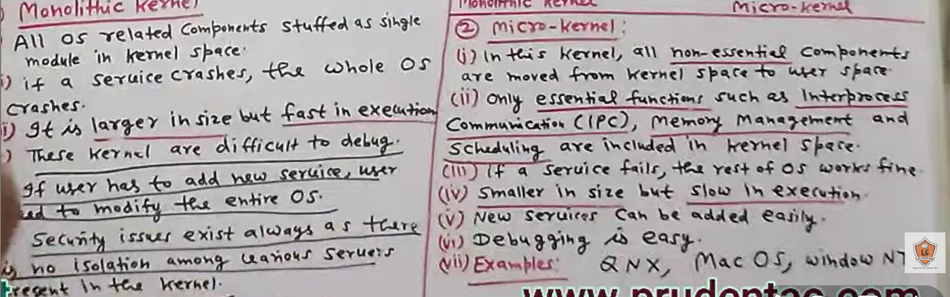 Monolithic Kernel
All OS related Components stuffed as single
module in Kernel space.
i) if a service crashes, the whole OS
crashes.
i) It is larger in size but fast in execution
) These Kernel are difficult to debug.
If user has to add new service, user
to modify the entire OS.
Security issues exist always as there
no isolation among various servers
present in the kernel.
Monolithic Kernel Micro-kernel
② Micro-kernel:
(i) In this kernel, all non-essential Components
are moved from Kernel space to user space.
(ii) Only essential functions such as Interprocess
Communication (IPC), Memory Management and
Scheduling are included in kernel space.
(iii) If a service fails, the rest of OS works fine.
(iv) Smaller in size but slow in execution.
(v) New services can be added easily.
(vi) Debugging is easy.
(vii) Examples: QNX, Mac OS, window NT